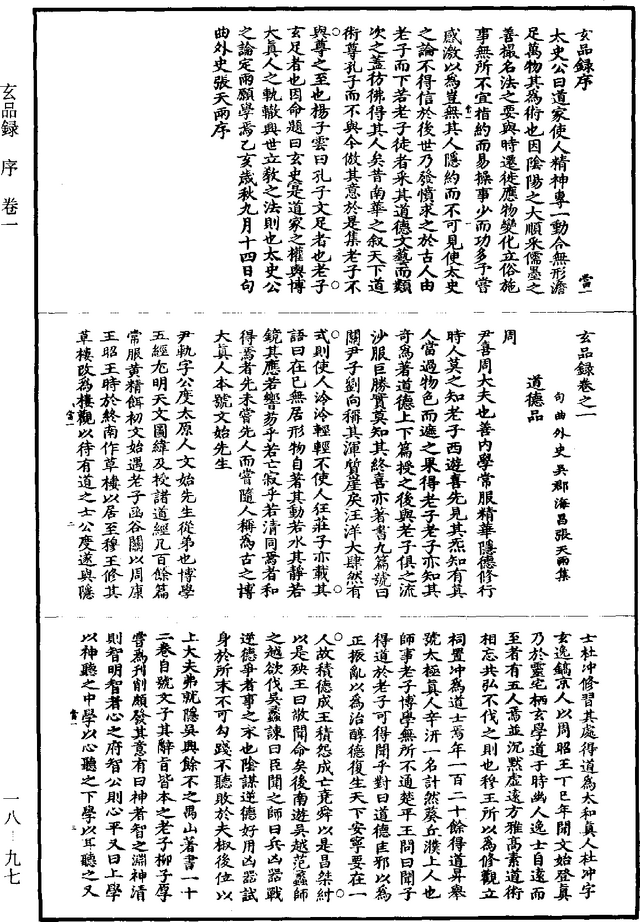 玄品録序
太史公曰道家使人精神專一動合無形澹
足萬物其為術也因陰陽之大順采儒墨之
善撮名法之要與時遷徙應物變化立俗施
事無所不宜指約而易操事少而功多予嘗
感激以為豈無其人隱約而不可見使太史
之論不得信於後世乃發憤求之於古人由
老子而下若老子徒者采其道德文藝而類
次之蓋彷彿得其人矣昔南華之叙天下道
術尊孔子而不與今倣其意於是集老子不
與尊之至也楊子雲曰孔子文足者也老子
玄足者也因命題曰玄史是道家之權輿博
大真人之軌轍與世立教之法則也太史公
之論定兩願學焉乙亥歲秋九月十四日句
曲外史張天雨序
玄品録卷之一
句曲外史吳郡海昌張天雨集
道德品
周
尹喜周大夫也善内學常服精華隱德修行
時人莫之知老子西遊喜先見其炁知有真
人當過物色而遮之果得老子老子亦知其
奇為著道德上下篇授之後與老子俱之流
沙服巨勝實莫知其終喜亦著書九篇號曰
關尹子劉向稱其渾質崖戾汪洋大肆然有
式則使人泠泠輕輕不使人狂莊子亦載其
語曰在己無居形物自著其動若水其靜若
鏡其應若響芴乎若亡寂乎若清同焉者和
得焉者先未嘗先人而嘗隨人稱為古之博
大真人本號文始先生
尹軌字公度太原人文始先生從弟也博學
五經尤明天文圖緯及校諸道經凡百餘篇
常服黄精餌初文始遇老子函谷關以周康
王昭王時於終南作草樓以居至穆王修其
草樓改為樓觀以待有道之士公度遂與隱
士杜冲修習其處得道為太和真人杜冲字
玄逸鎬京人以周昭王丁巳年聞文始登真
乃於靈宅栖玄學道于時幽人逸士自遠而
至者有五人焉並沉默虛遠方雅高素道術
相忘共弘不伐之則也穆王所以為修觀立
祠置冲為道士焉年一百二十餘得道昇舉
號太極真人辛汧一名計然葵丘濮上人也
師事老子博學無所不通楚平王問曰聞子
得道於老子可得聞乎對曰道德匡邪以為
正振亂以為治醇德復生天下安寧要在一
人故積德成王積怨成亡堯舜以是昌桀紂
以是殃王曰敬聞命矣後南遊吳越范蠡師
之越欲伐吳蠡諫曰臣聞之師曰兵凶器戰
逆德爭者事之末也陰謀逆德好用凶器試
身於所末不可勾踐不聽敗於夫椒後位以
上大夫弗就隱吳興餘不之禺山著書一十
二卷自號文子其辭旨皆本之老子柳子厚
嘗為刊削頗發其意有曰神者智之淵神清
則智明智者心之府智公則心平又曰上學
以神聽之中學以心聽之下學以耳聽之又
玄品録 序 卷一
一八-九七